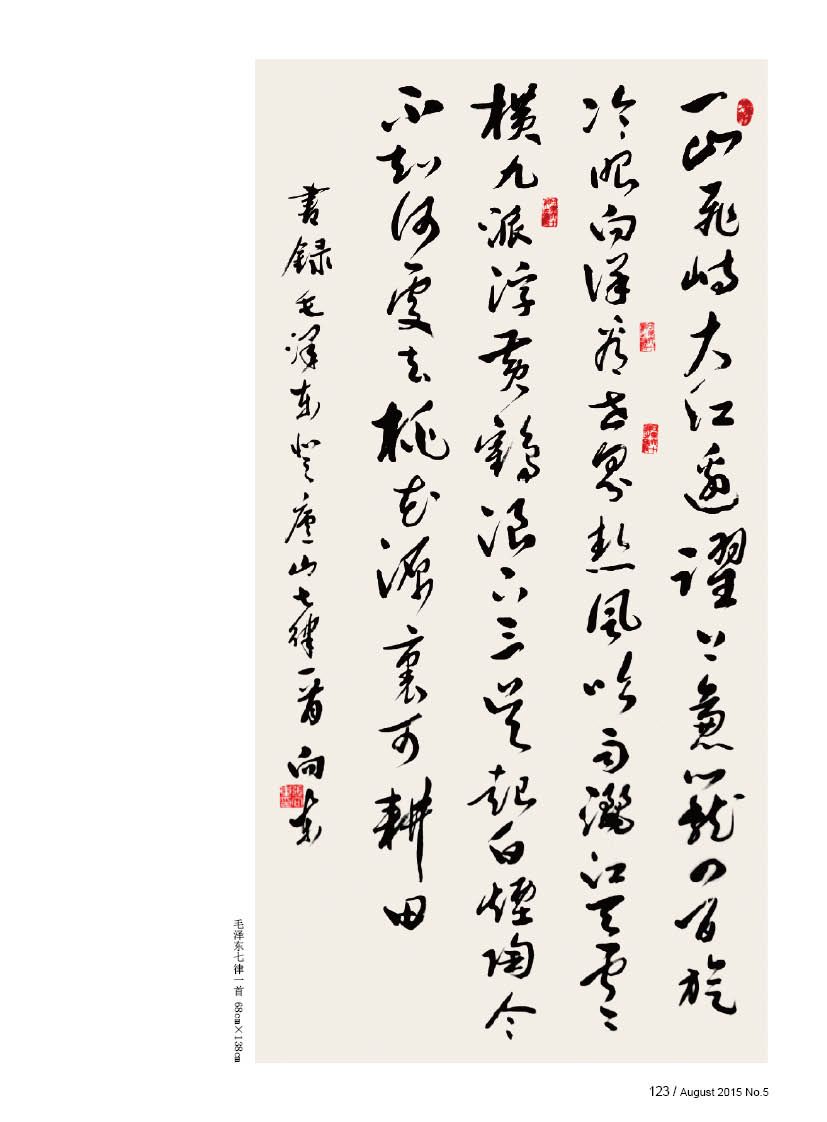 一山飛峙大江邊躍上葱蘢四百旋
冷眼向洋看世界熱風吹雨灑江天雲
橫九派浮黄鶴浪下三吴起白煙陶令
不知何處去桃花源裏可耕田
書録毛澤東登廬山七律一首 向東
毛泽东七律一首 68cm×138cm
123 / August 2015 No.5